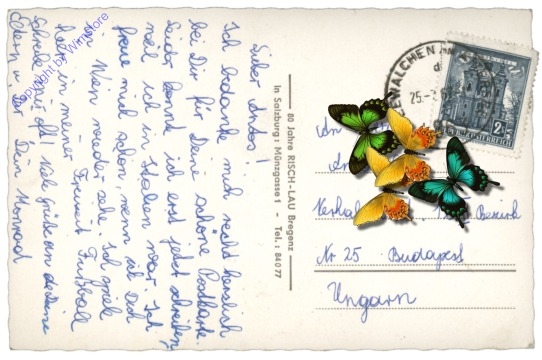 Lieber Antos!
Ich bedanke mich recht herzlich
bei Dir für Deine schöne Postkarte.
Leider kann ich erst jetzt schreiben,
weil ich in Italien war. Ich
freue mich schon, wenn wir Dich
Wien wieder sehe. Ich spiele
in meiner Freizeit Fußball
Schreibe mir oft! Viele Grüße an die Deine
Eltern u. Dir Dein
Copyright by Wimstore
80 Jahre RISCH-LAU Bregenz
In Salzburg: Münzgasse 1 - Tel.: 84077
EWALCHEN AM
25.-
ÖSTERREICH
An
Bezirk
Nr 25 Budapest
Ungarn